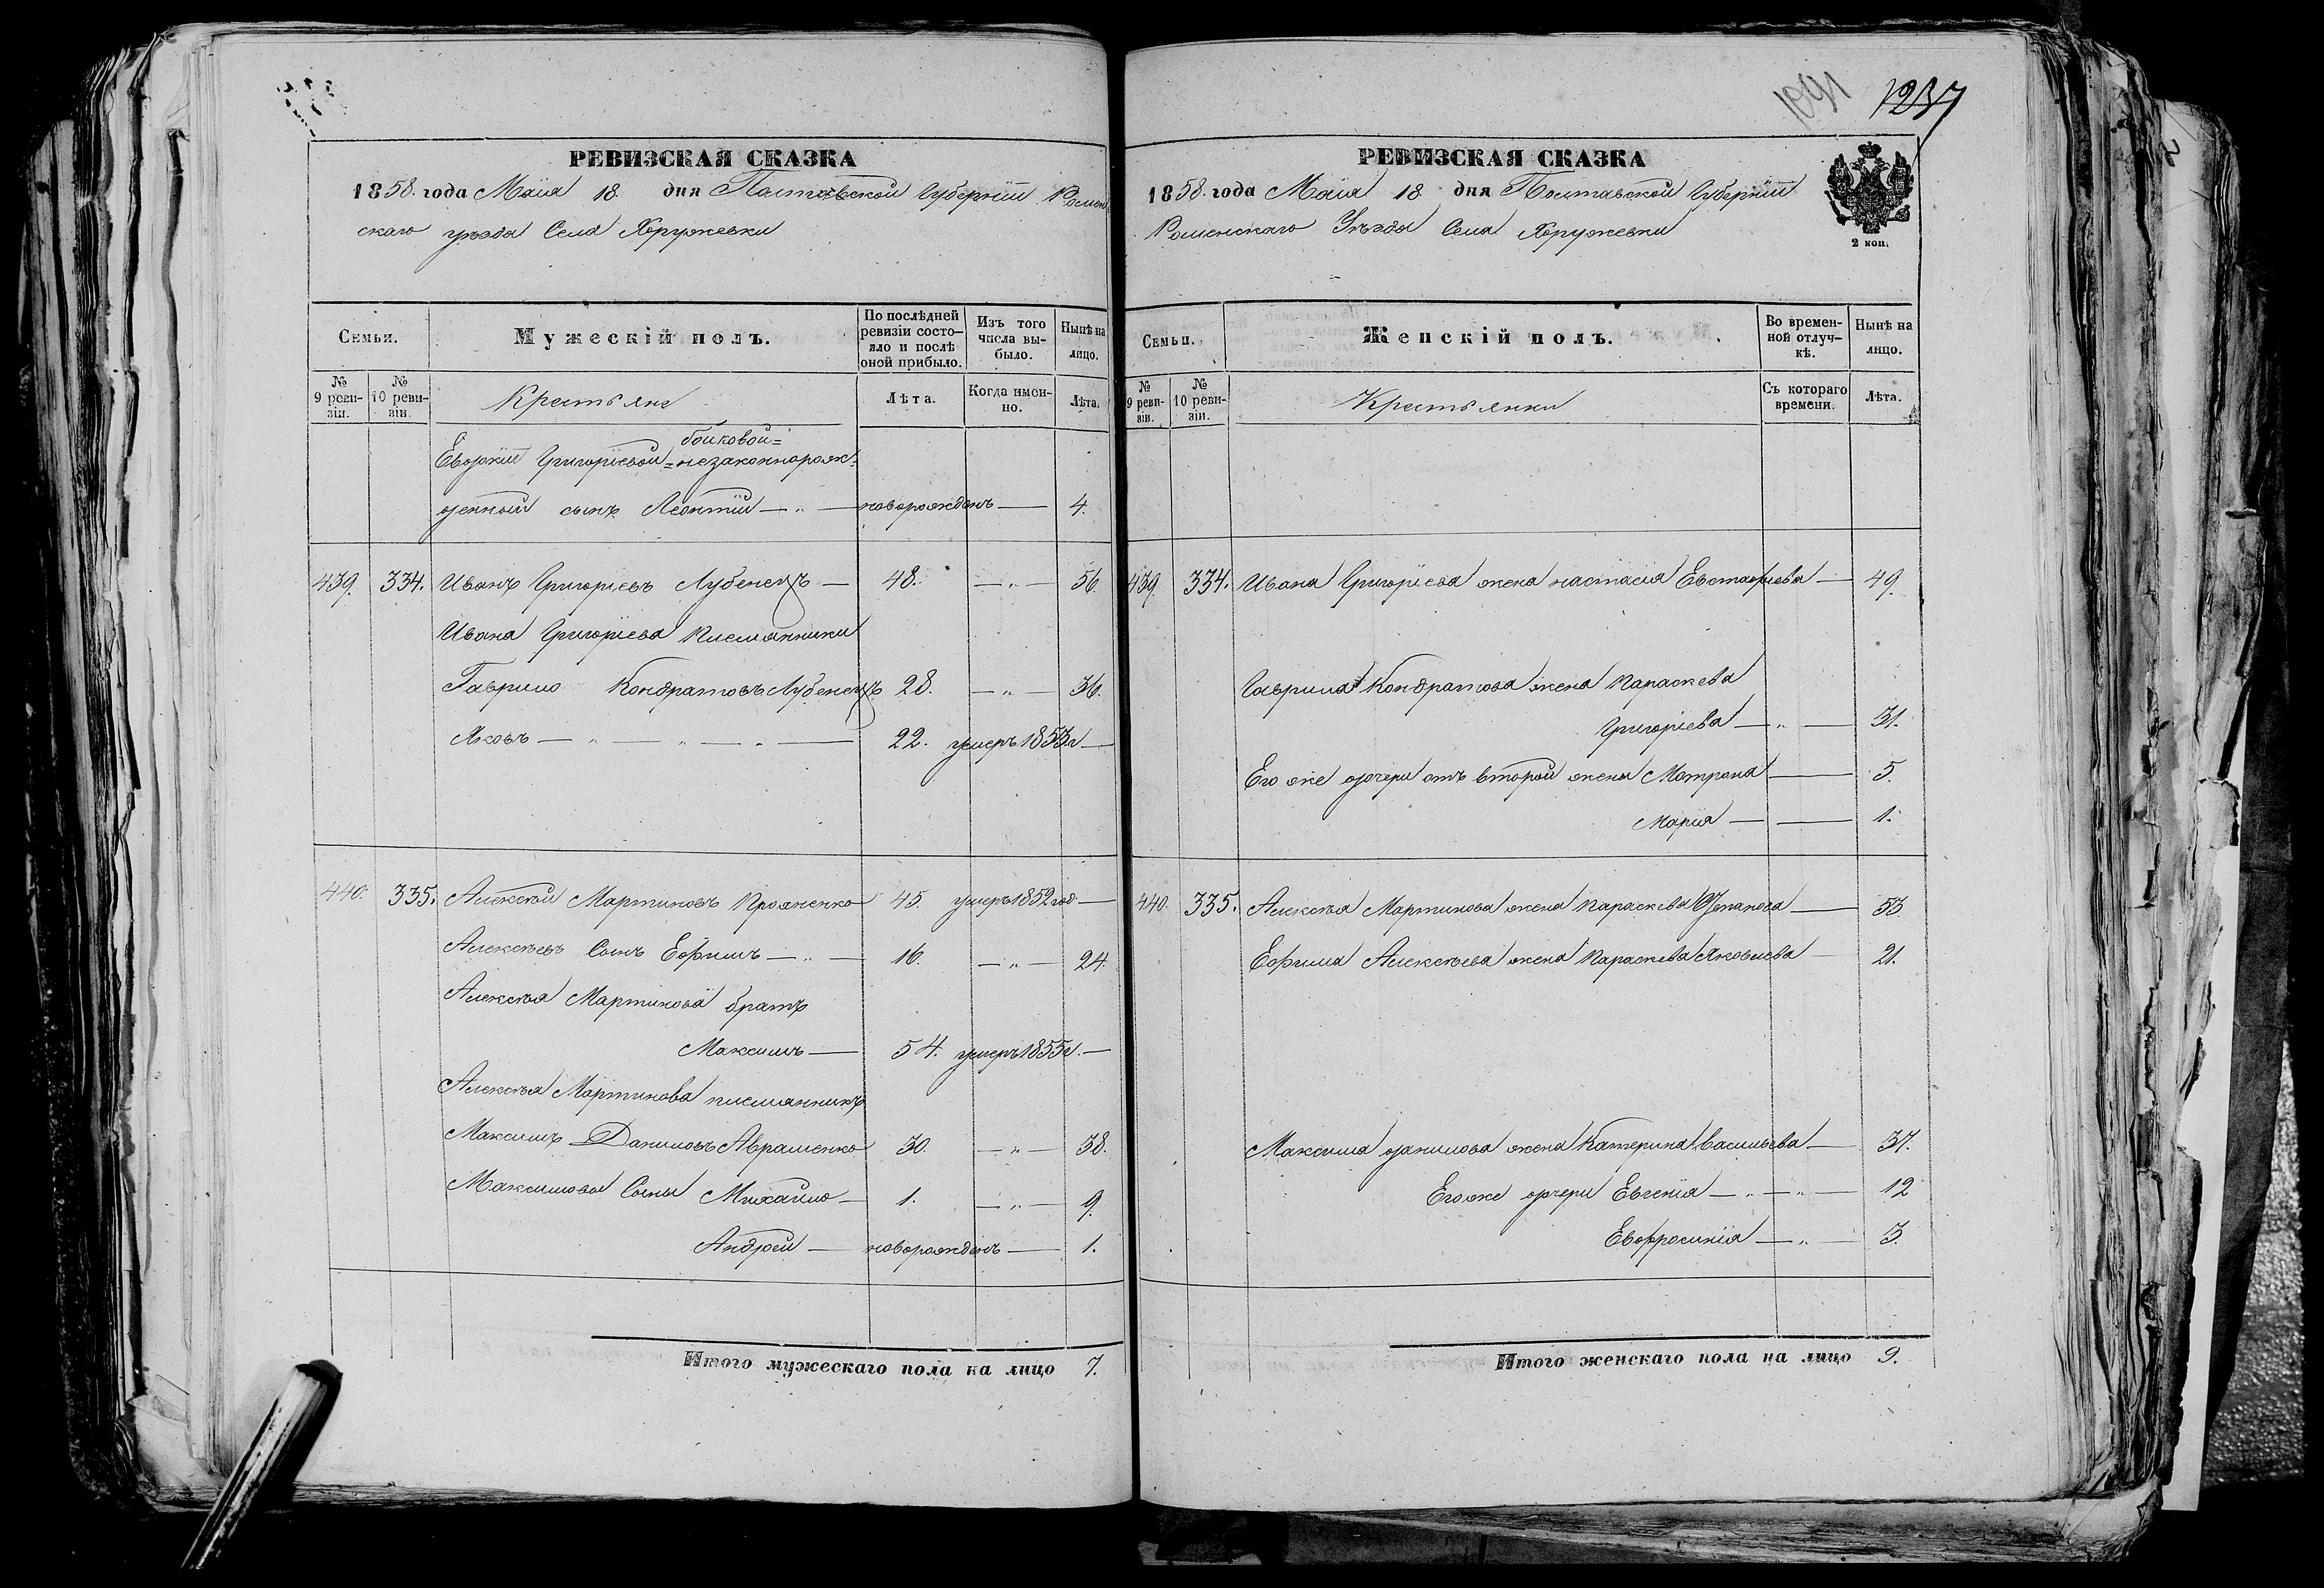 РЕВИЗСКАЯ СКАЗКА
1858. года Маія 18. дня Полтавской Губерніи Ромен
скаго уѣзда Села Хоружевки
Семьи.
Мужескій полъ.
По послѣдней ревизіи состо-яло и послѣ оной прибыло.
Изъ того числа вы-было.
Нынѣ на лицо.
№ 9 реви-зіи.
№ 10 реви-зіи.
Крестьяне
Лѣта.
Когда имен-но.
Лѣта.
бойковой=
Евдокіи Григоріевой=незаконнорож-
денный сынъ Леонтій — „ — новорожденъ — 4.
439. 334. Иванъ Григоріевъ Лубенецъ — 48. — „ — 56.
Ивана Григоріева племянники
Гаврило Кондратовъ Лубенецъ 28. — „ — 36.
Яковъ — „ — „ — „ — 22. умеръ 1853г —
440. 335. Алексѣй Мартиновъ 45. умеръ 1852 год. —
Алексѣевъ Сынъ Ефимъ — „ — 16. — „ — 24.
Алексѣя Мартинова братъ
Максимъ — 54. умеръ 1855г. —
Алексѣя Мартинова племянникъ
Максимъ Даниловъ Авраменко 30. — „ — 38.
Максимовы Сыны Михайло — 1. — „ — 9.
Андрей — новорожденъ — 1.
Итого мужескаго пола на лицо 7.
1091 1237
РЕВИЗСКАЯ СКАЗКА
1858. года Маія 18 дня Полтавской Губерніи
Роменскаго Уѣзда Села Хоружевки
2 коп.
Семьи.
Женскій полъ.
Во времен-ной отлуч-кѣ.
Нынѣ на лицо.
№ 9 реви-зіи.
№ 10 реви-зіи.
Крестьянки
Съ котораго времени.
Лѣта.
439. 334. Ивана Григоріева жена настасія Евстафіева — 49.
Гаврила Кондратова жена Параскева
Григоріева — „ — 31.
Его же дочери отъ второй жены Матрона — 5.
Марія — 1.
440. 335. Алексѣя Мартинова жена Параскева — 53.
Ефима Алексѣева жена Параскева Яковлева — 21.
Максима данилова жена Катерина Васильева — 37.
Его же дочери Евгенія — „ — „ — 12
Евфросинія — „ — 3.
Итого женскаго пола на лицо 9.